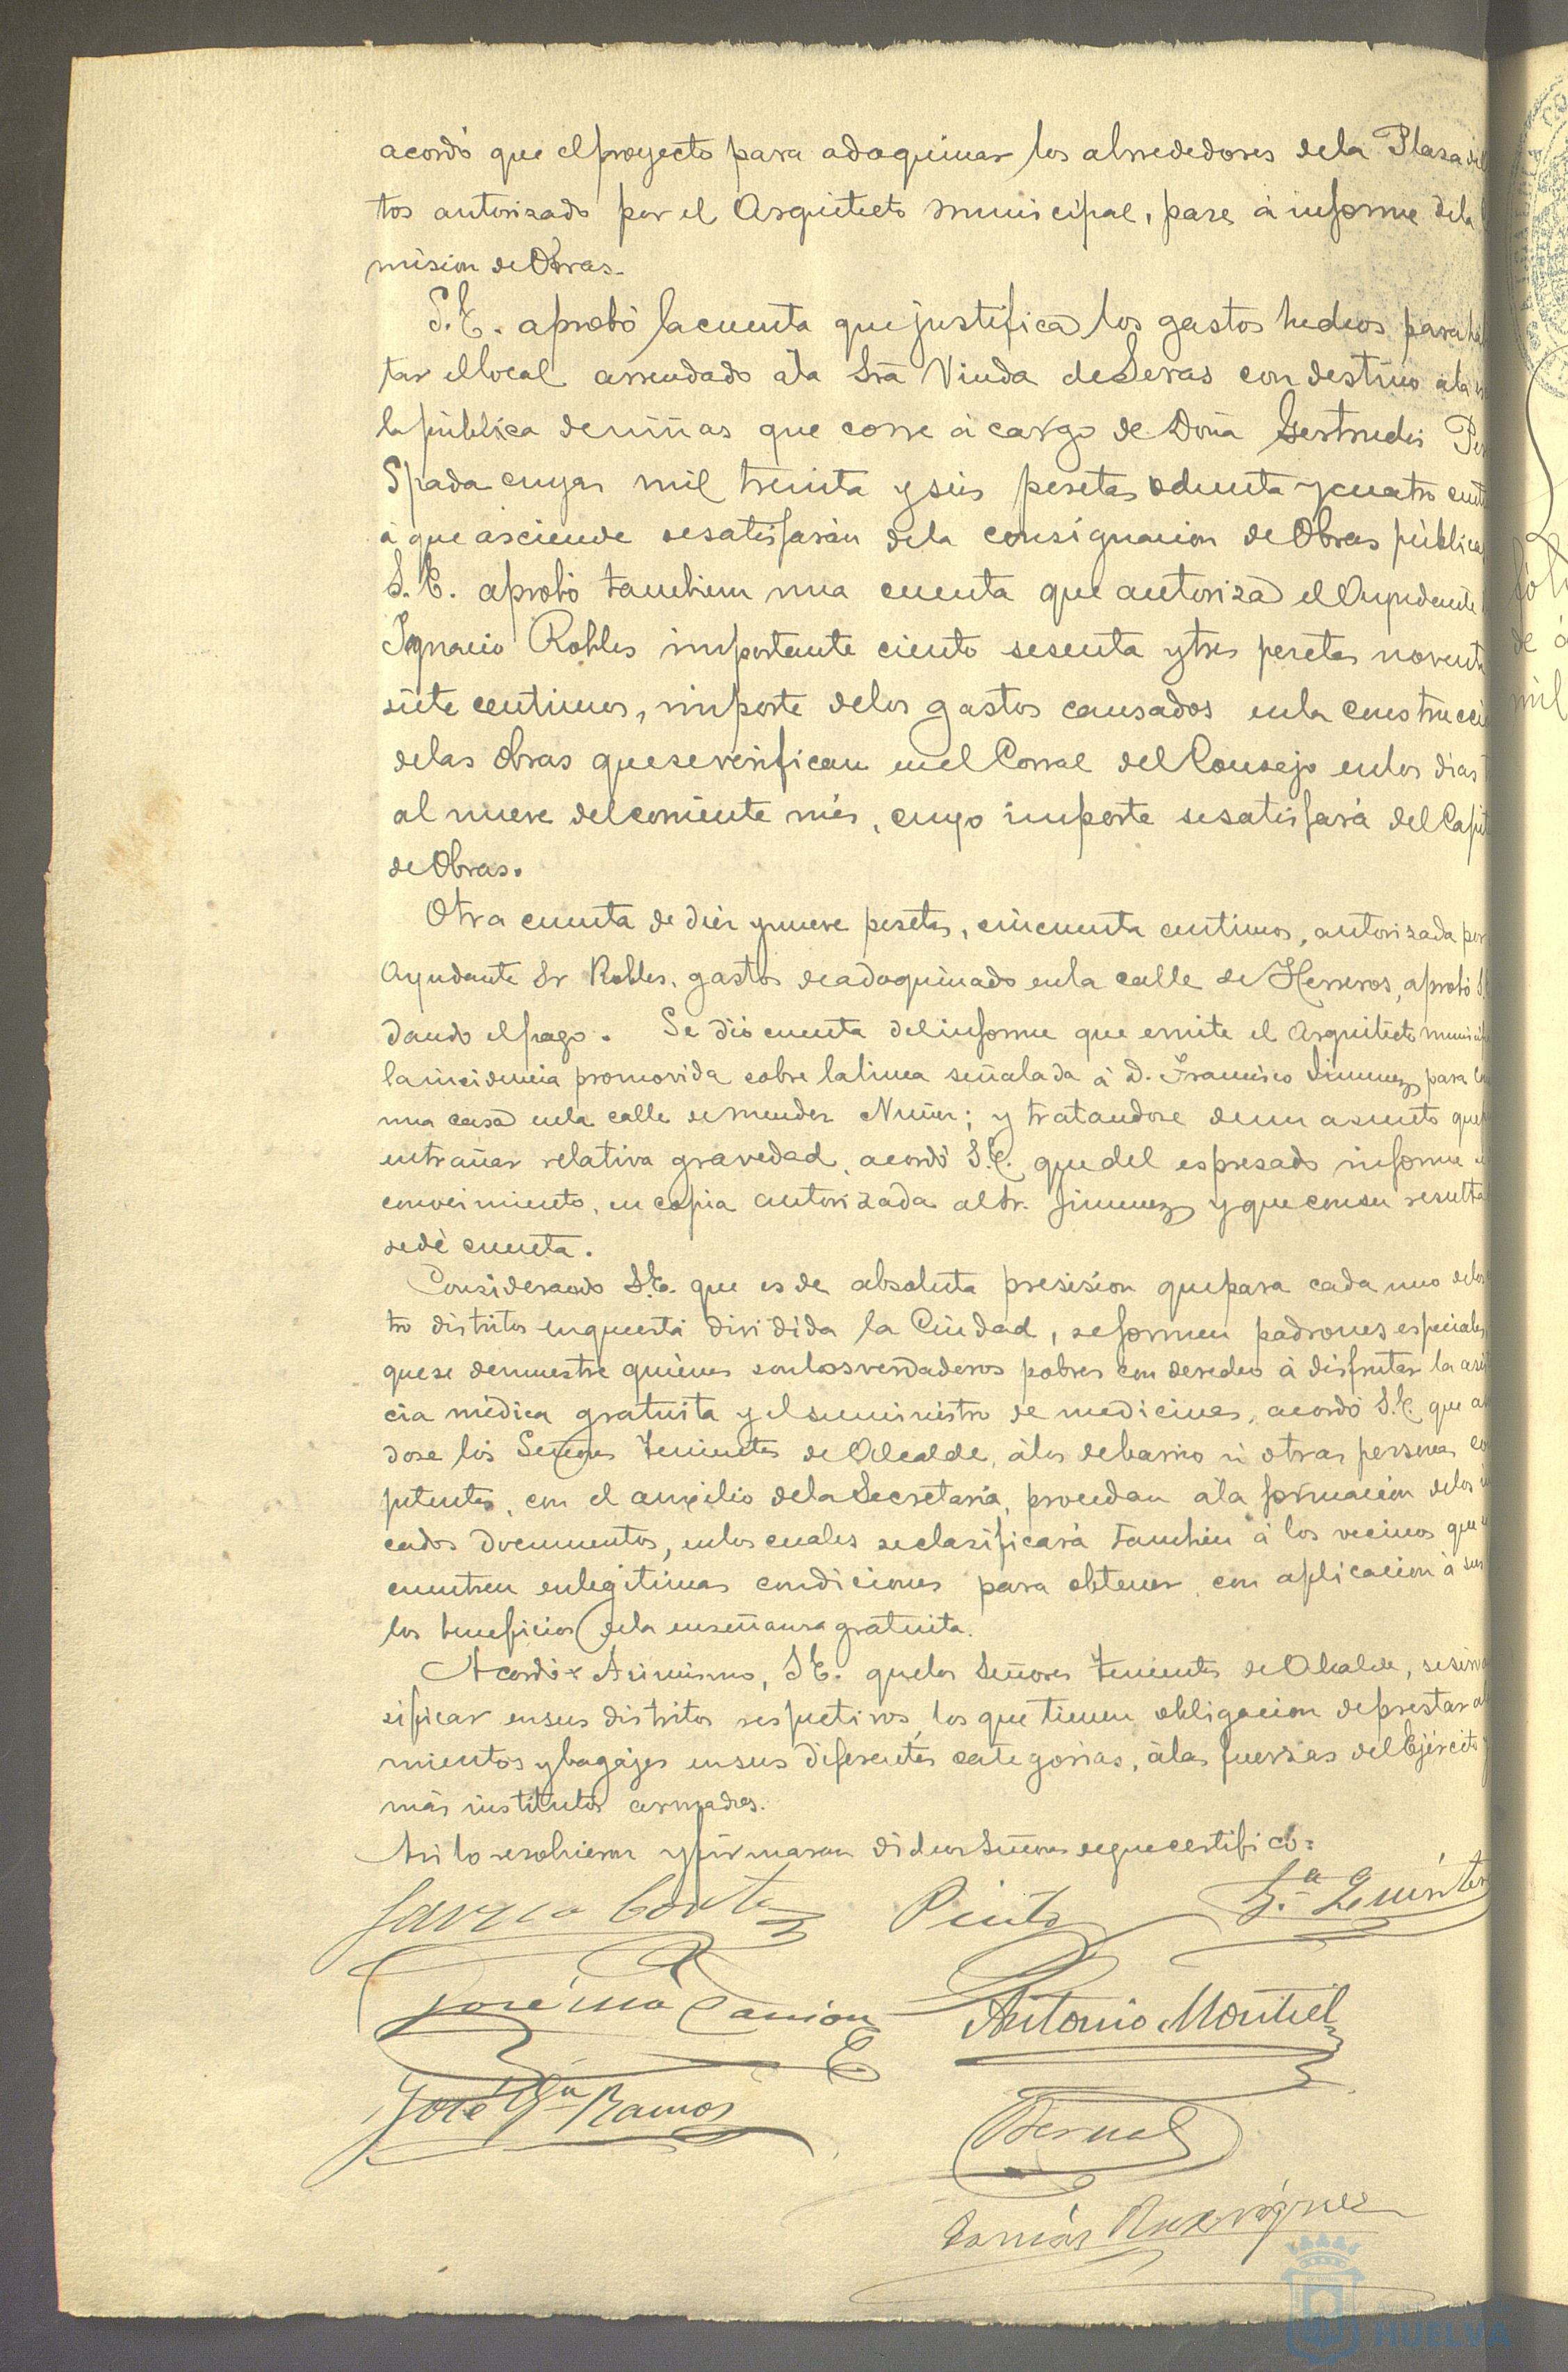 acordó que el proyecto para adoquinar los alrrededores de la Plaza del
tos autorizado por el Arquitecto municipal, pase á informe de la
mision de Obras.
S.E. aprobó la cuenta que justifica los gastos hechos para ha
tar el local arrendado á la Sra Viuda de Seras con destino á la es
la pública de niñas que corre á cargo de Doña Gertrudis
Spada cuyas mil treinta y seis pesetas ochenta y cuatro cent
á que asciende se satisfarán de la consignacion de Obras pública
S.E. aprobó tambien una cuenta que autoriza el Ayudante
Ignacio Robles importante ciento sesenta y tres pesetas novent
siete centimos, importe de los gastos causados en la construcci
de las obras que se verifican en el Corral del Consejo en los dias
al nueve del corriente més, cuyo importe se satisfará del Capit
de Obras.
Otra cuenta de diez y nueve pesetas, cincuenta centimos, autorizada por
Ayudante Sr Robles, gastos de adoquinado en la calle de Herreros, aprobó S.
dando el pago. Se dió cuenta del informe que emite el Arquitecto munici
la incidencia promovida sobre la linea señalada á D. Francisco Jimenez para
una casa en la calle de Mendez Nuñez; y tratandose de un asunto que
entrañar relativa gravedad, acordó S.E. que del espresado informe
conocimiento, en copia autorizada al Sr. Jimenez y que con su resulta
se dé cuenta.
Considerando S.E. que es de absoluta presision que para cada uno de los
tro distritos en que está dividida la Ciudad, se formen padrones especiales
que se demuestre quienes son los verdaderos pobres con derecho á disfrutar la asis
cia médica gratuita y el suministro de medicinas, acordó S.E. que
dose los Señores Tenientes de Alcalde, á los de barrio ú otras personas co
petentes, con el auxilio de la Secretaria, procedan á la formacion de los in
cados documentos, en los cuales se clasificará tambien á los vecinos que
cuentren en legitimas condiciones para obtener, con aplicacion á sus
los beneficios de la enseñanza gratuita.
Acordó Asimismo, S.E. que los Señores Tenientes de Alcalde, se sirva
sificar en sus distritos respectivos, los que tienen obligacion de prestar al
mientos y bagajes en sus diferentes categorias, á las fuerzas del Ejército
más institutos armados.
Asi lo resolvieron y firmaron dichos Señores de que certifico:
Garcia Cortés Pinto Ga. Quinter
José Ma Antonio Montiel
José Ga Ramos
Bernal
Tomás Rodriguez
HUELVA